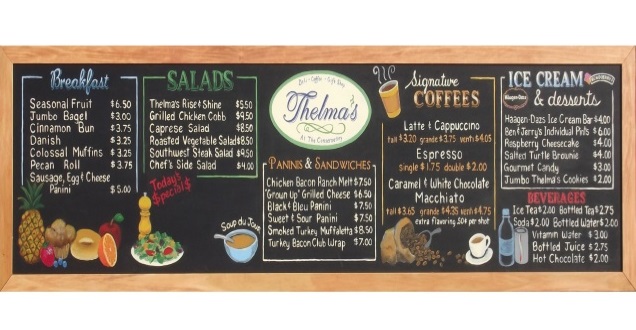 Breakfast
Seasonal Fruit $6.50
Jumbo Bagel $3.00
Cinnamon Bun $3.75
Danish $3.25
Colossal Muffins $3.25
Pecan Roll $3.75
Sausage, Egg & Cheese
Panini $5.00
SALADS
Thelma's Rise & Shine $5.50
Grilled Chicken Cobb $4.50
Caprese Salad $8.50
Roasted Vegetable Salad $8.50
Southwest Steak Salad $9.50
Chef's Side Salad $4.00
Today's
$pecial$
Soup du Jour
Deli • Coffee • Gift Shop
Thelma's
At The Community
PANINIS & SANDWICHES
Chicken Bacon Ranch Melt $7.50
'Grown Up' Grilled Cheese $6.50
Black & Bleu Panini $7.50
Sweet & Sour Panini $7.50
Smoked Turkey Muffaletta $8.50
Turkey Bacon Club Wrap $7.00
Signature
COFFEES
Latte & Cappuccino
tall $3.20 grande $3.75 venti $4.05
Espresso
single $1.75 double $2.00
Caramel & White Chocolate
Macchiato
tall $3.65 grande $4.35 venti $4.75
extra flavoring 50¢ per shot
ICE CREAM
& desserts
Häagen-Dazs
Häagen-Dazs Ice Cream Bar $4.00
Ben & Jerry's Individual Pnts $6.00
Raspberry Cheesecake $4.00
Salted Turtle Brownie $4.00
Gourmet Candy $3.00
Jumbo Thelma's Cookies $2.00
BEVERAGES
Ice Tea $2.00 Bottled Tea $2.75
Soda $2.00 Bottled Water $2.00
Vitamin Water $3.00
Bottled Juice $2.75
Hot Chocolate $2.00